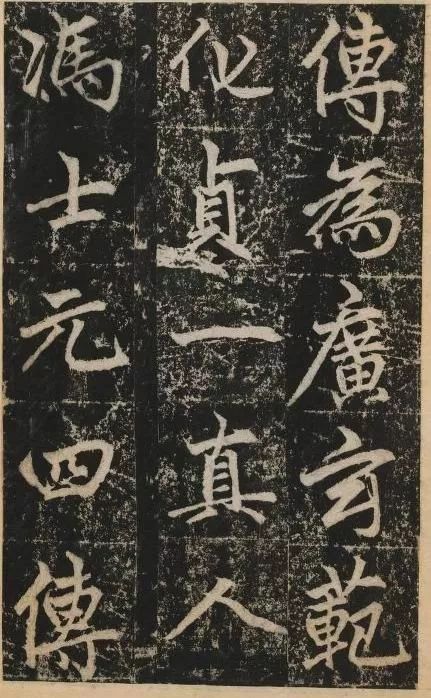 傳為廣玄範
化貞一真人
馮士元四傳